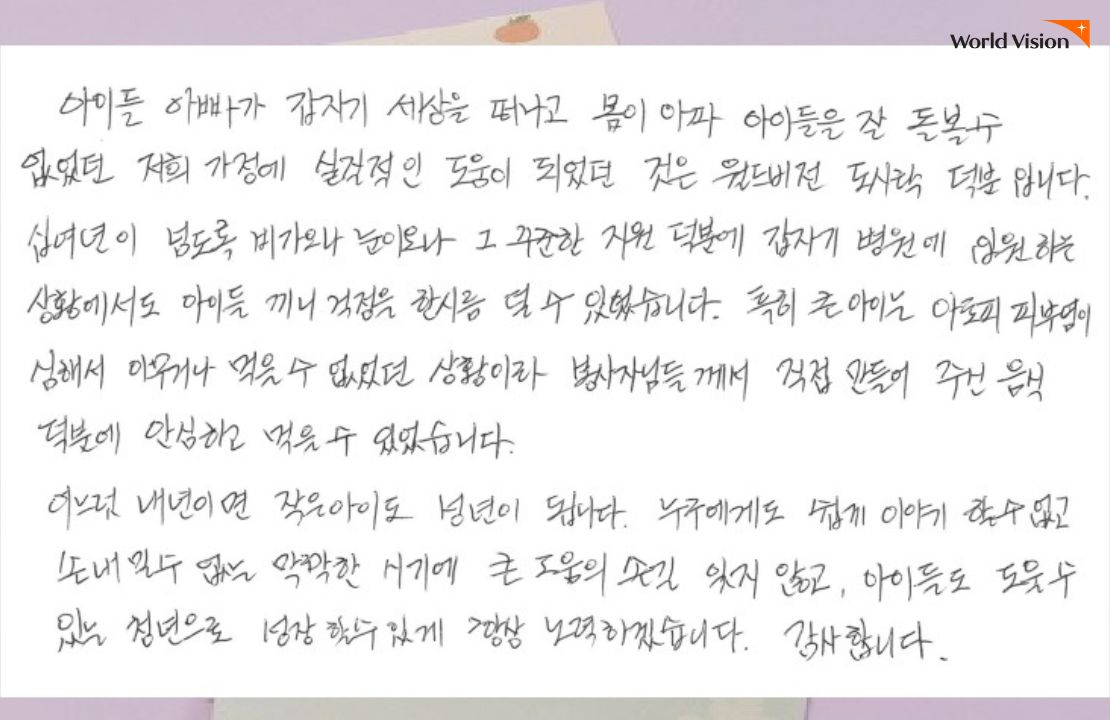 World Vision
아이들 아빠가 갑자기 세상을 떠나고 몸이 아파 아이들을 잘 돌볼 수
없었던 저희 가정에 실질적인 도움이 되었던 것은 월드비전 도시락 덕분입니다.
십여년이 넘도록 비가오나 눈이오나 그 꾸준한 지원 덕분에 갑자기 병원에 입원하는
상황에서도 아이들 끼니 걱정은 한시름 덜 수 있었습니다. 특히 큰아이는 아토피 피부염이
심해서 아무거나 먹을 수 없었던 상황이라 봉사자님들께서 직접 만들어 주신 음식
덕분에 안심하고 먹을 수 있었습니다.
어느덧 내년이면 작은아이도 성년이 됩니다. 누구에게도 쉽게 이야기 할 수 없고
손 내밀 수 없는 막막한 시기에 큰 도움의 손길 잊지 않고, 아이들도 도울 수
있는 청년으로 성장 할 수 있게 항상 노력하겠습니다. 감사합니다.